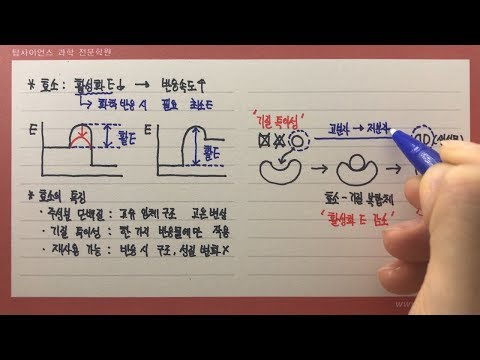 탑사이언스 과학 전문학원
* 효소 : 활성화 E↓ → 반응속도↑
↳ 화학 반응 시 필요 최소 E
E
활E
E
활E
* 효소의 특징
· 주성분 단백질 : 고유 입체 구조 고온 변성
· 기질 특이성 : 한 가지 반응물에만 작용
· 재사용 가능 : 반응 시 구조, 성질 변화 ×
"기질 특이성"
고분자 → 저분자
효소-기질 복합체
"활성화 E 감소"
www.